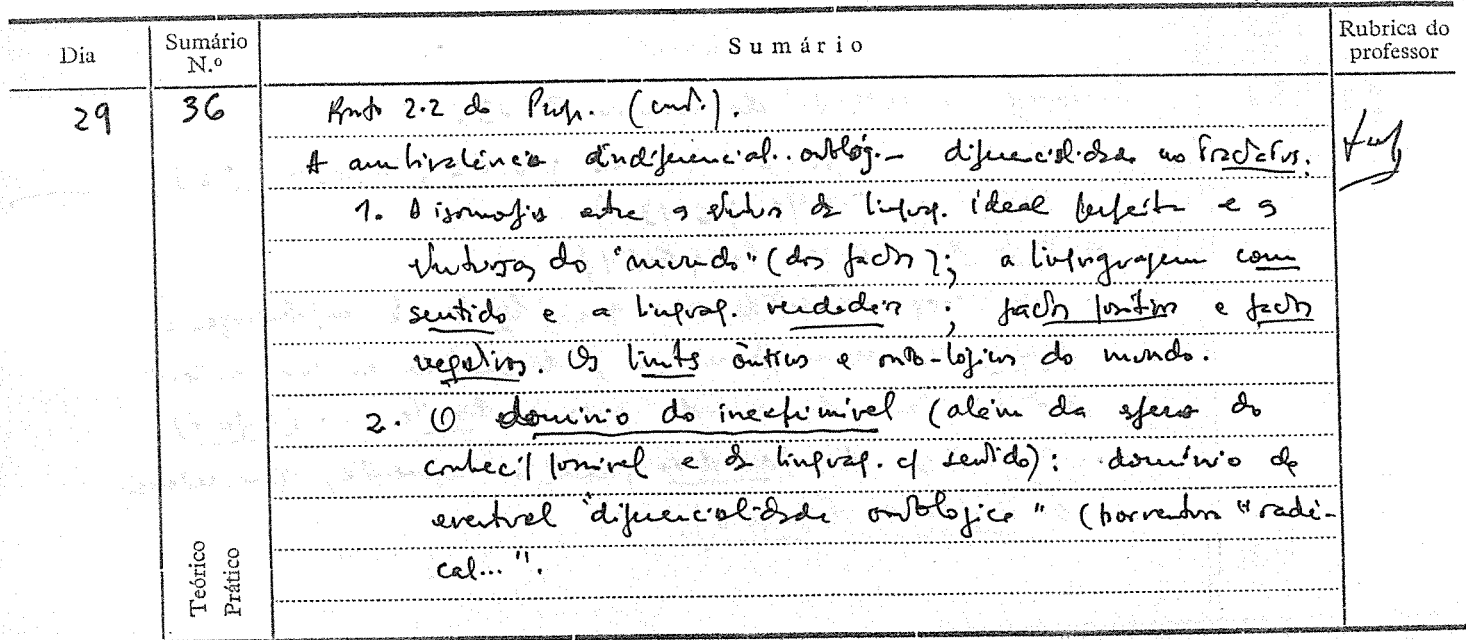 Dia
Sumário N.º
Sumário
Rubrica do professor
29
36
Ponto 2.2 do Prog. (cont.).
A ambivalência ontológ. - diferencialidade no Tractatus.
1. A isomorfia entre a estrutura da linguag. ideal perfeita e a
estrutura do "mundo" (dos factos); a linguagem com
sentido e a linguag. verdadeira; factos positivos e factos
negativos. Os limites ônticos e onto-lógicos do mundo.
2. O domínio do inexprimível (além da esfera do
possível e da linguag. c/ sentido): domínio de
eventual "diferencialidade ontológica" (porventura "radi-
cal...".
Teórico
Prático